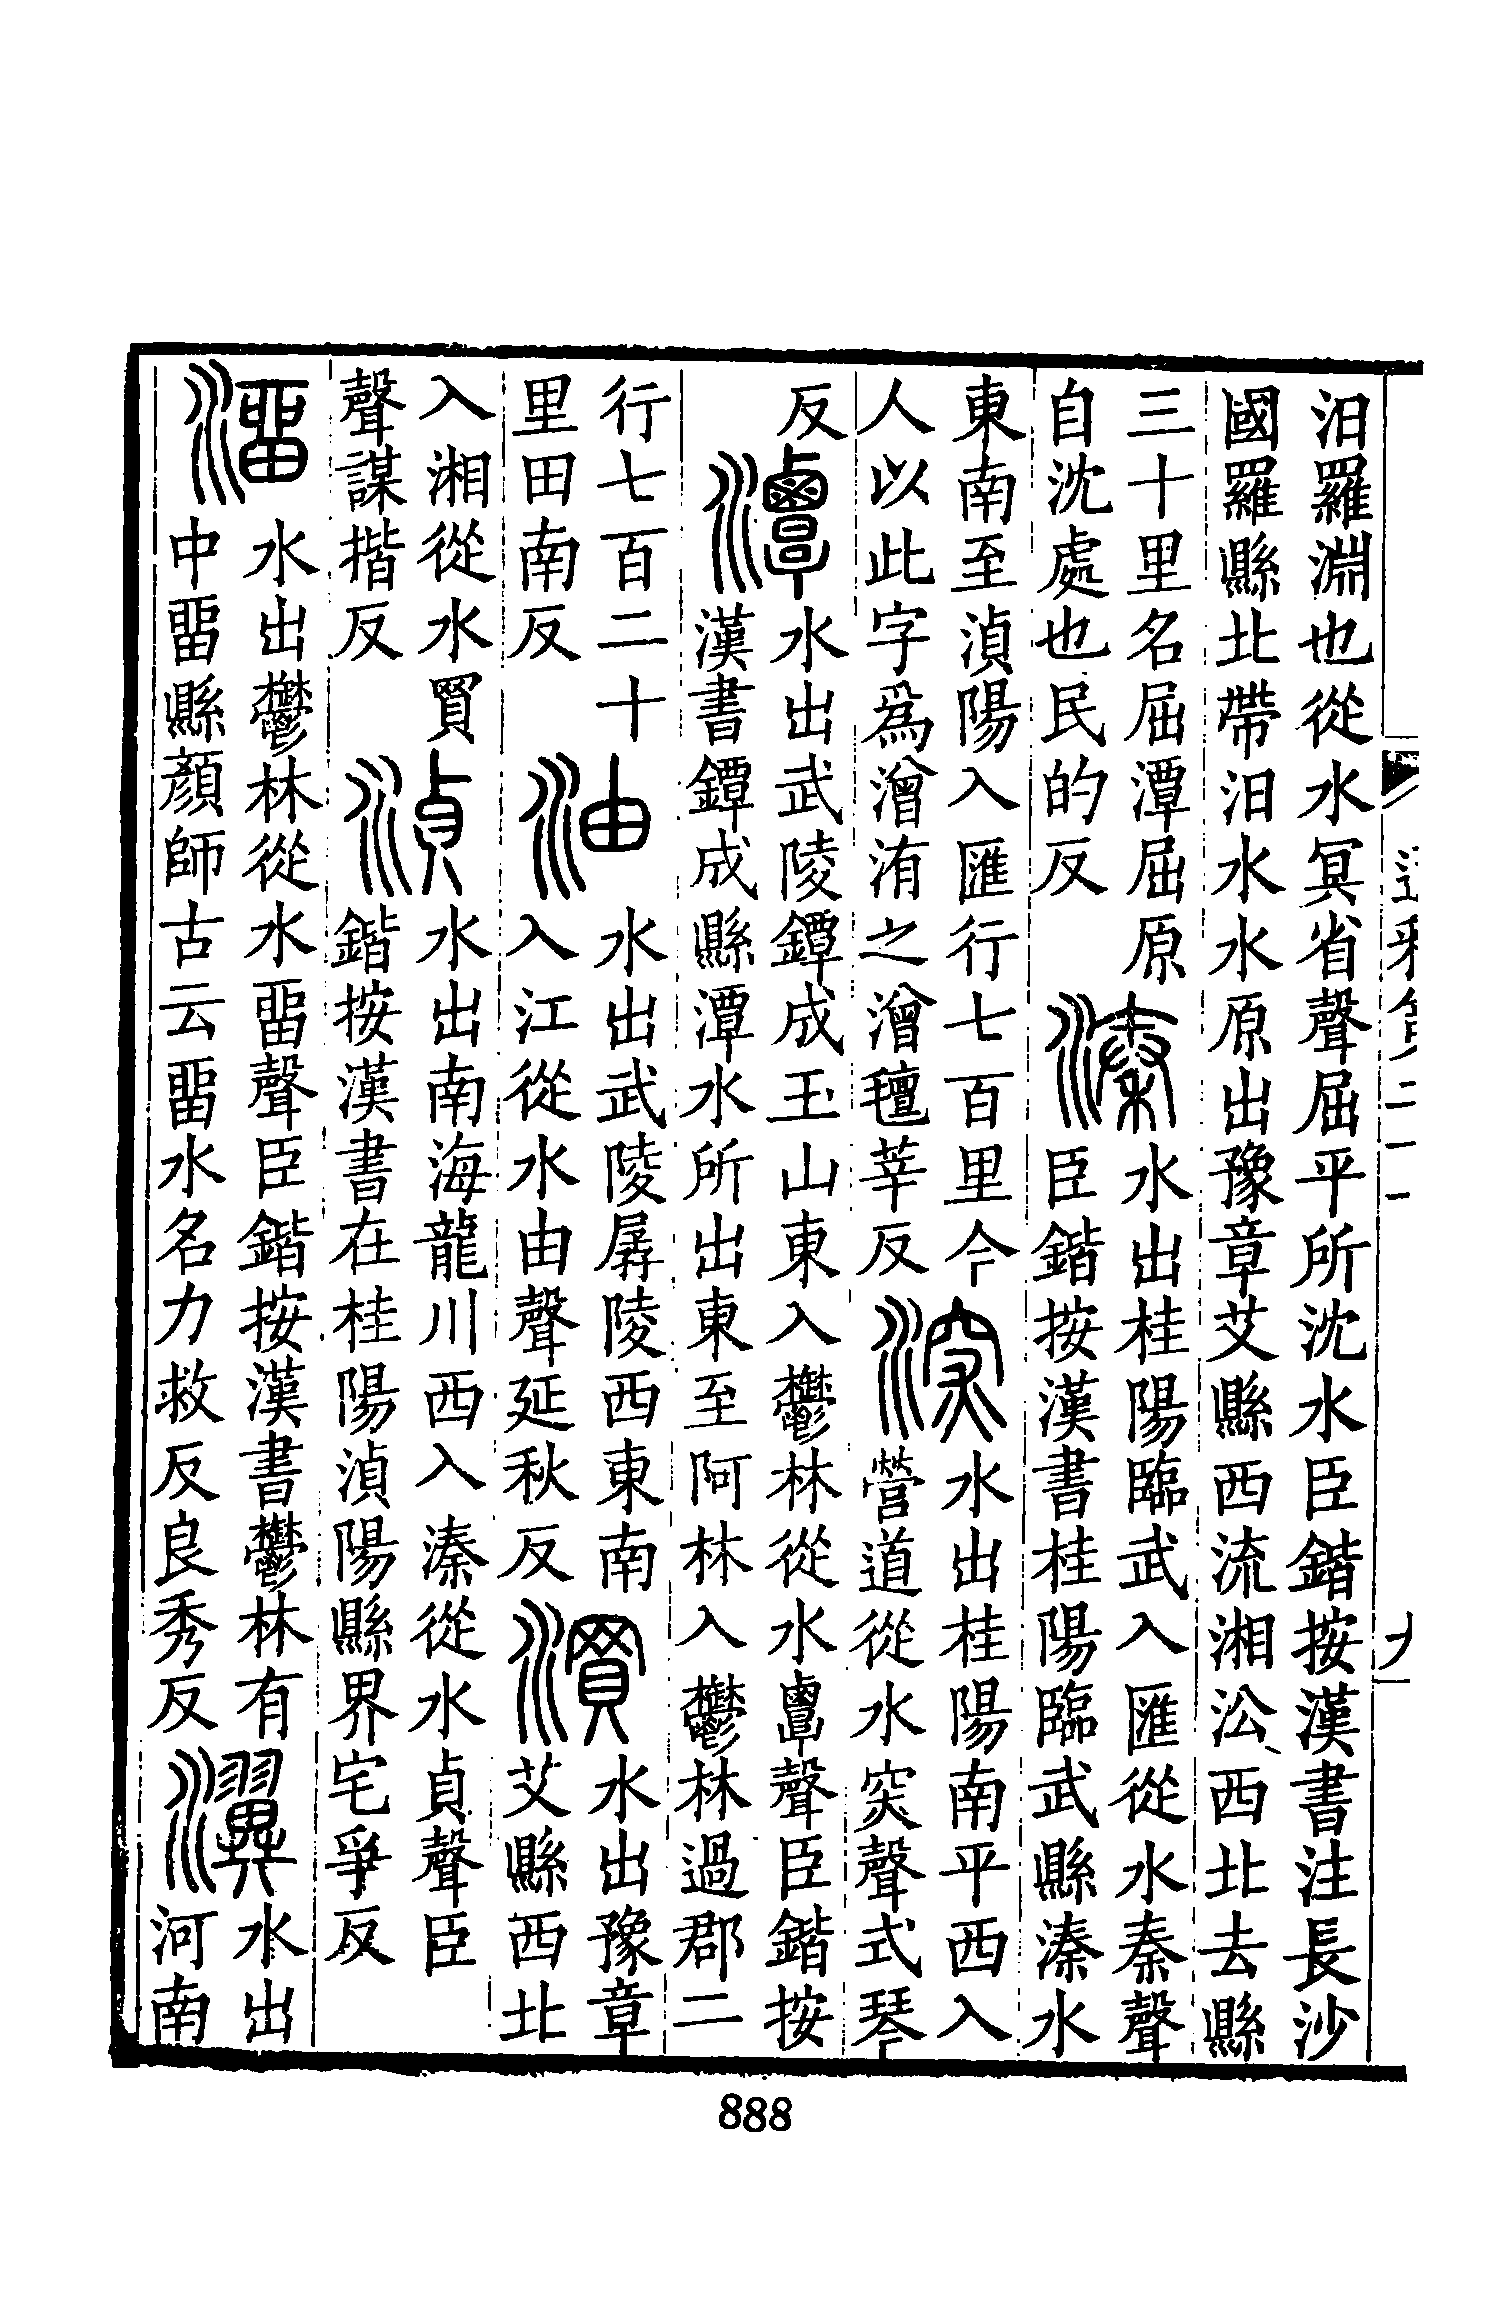 汨羅淵也從水冥省聲屈平所沈水臣鍇按漢書注長沙
國羅縣北帶汨水水原出豫章艾縣西流湘㳂西北去縣
三十里名屈潭屈原
自沈處也民的反
溱
水出桂陽臨武入匯從水秦聲
臣鍇按漢書桂陽臨武縣溱水
東南至湞陽入匯行七百里今
人以此字爲澮洧之澮氊莘反
深
水出桂陽南平西入
營道從水罙聲式琴
反
潭
水出武陵鐔成玉山東入鬱林從水覃聲臣鍇按
漢書鐔成縣潭水所出東至阿林入鬱林過郡二
行七百二十
里田南反
油
水出武陵孱陵西東南
入江從水由聲延秋反
㵋
水出豫章
艾縣西北
入湘從水買
聲謀揩反
湞
水出南海龍川西入溱從水貞聲臣
鍇按漢書在桂陽湞陽縣界宅爭反
溜
水出鬱林從水畱聲臣鍇按漢書鬱林有
中畱縣顔師古云畱水名力救反良秀反
瀷
水出
河南
888